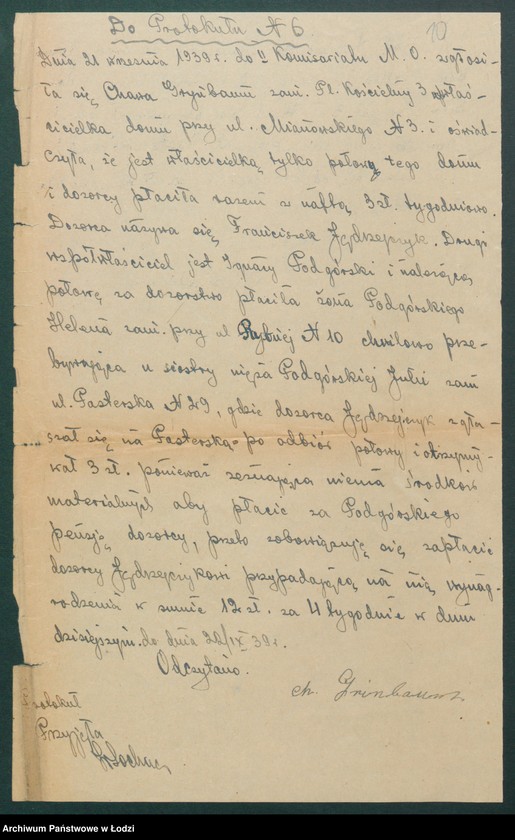 Do Protokułu N 6
10
Dnia 21 września 1939 r. do II Komisariatu M. O. zgłosi-
ła się Chawa Grynbaum zam. Pl. Kościelny 3 właś-
cicielka domu przy ul. Mianowskiego N 3. i oświad-
czyła, że jest właścicielką tylko połową tego domu
i dozorcy płaciła razem z naftą 3 zł. tygodniowo.
Dozorca nazywa się Franciszek Jędrzejczyk. Drugi
współwłaściciel jest Ignacy Podgórski i należącą
połowę za dozorstwo płaciła żona Podgórskiego
Helena zam. przy ul Rybnej N 10 chwilowo prze-
bywająca u siostry męża Podgórskiej Julii zam
ul. Pasterska N 29, gdzie dozorca Jędrzejczyk zgła-
szał się na Pasterską po odbiór połowy i otrzymy-
wał 3 zł. ponieważ zeznająca niema środków
materialnych aby płacić za Podgórskiego
pensję dozorcy, przeto zobowiązuję się zapłacić
dozorcy Jędrzejczykowi przypadającą na nią wynag-
rodzenia w sumie 12 zł. za 4 tygodnie w dniu
dzisiejszym. do dnia /IX 39 r.
Odczytano.
ch. Grinbaum
Protokuł
Przyjęła
Archiwum Państwowe w Łodzi